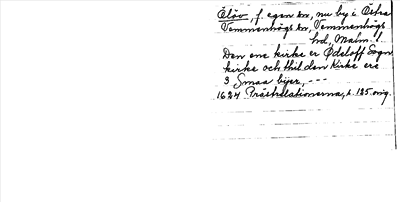 Ölöv, f. egen sn, nu by i Östra
Vemmenhögs sn, Vemmenhögs
hd, Malm. l.
Den ene kirke er Ödsloff Sogn
kirke och thil den Kirke ere
3 Smaa byer, ---
1624 Prästrelationerna, s. 125 orig.